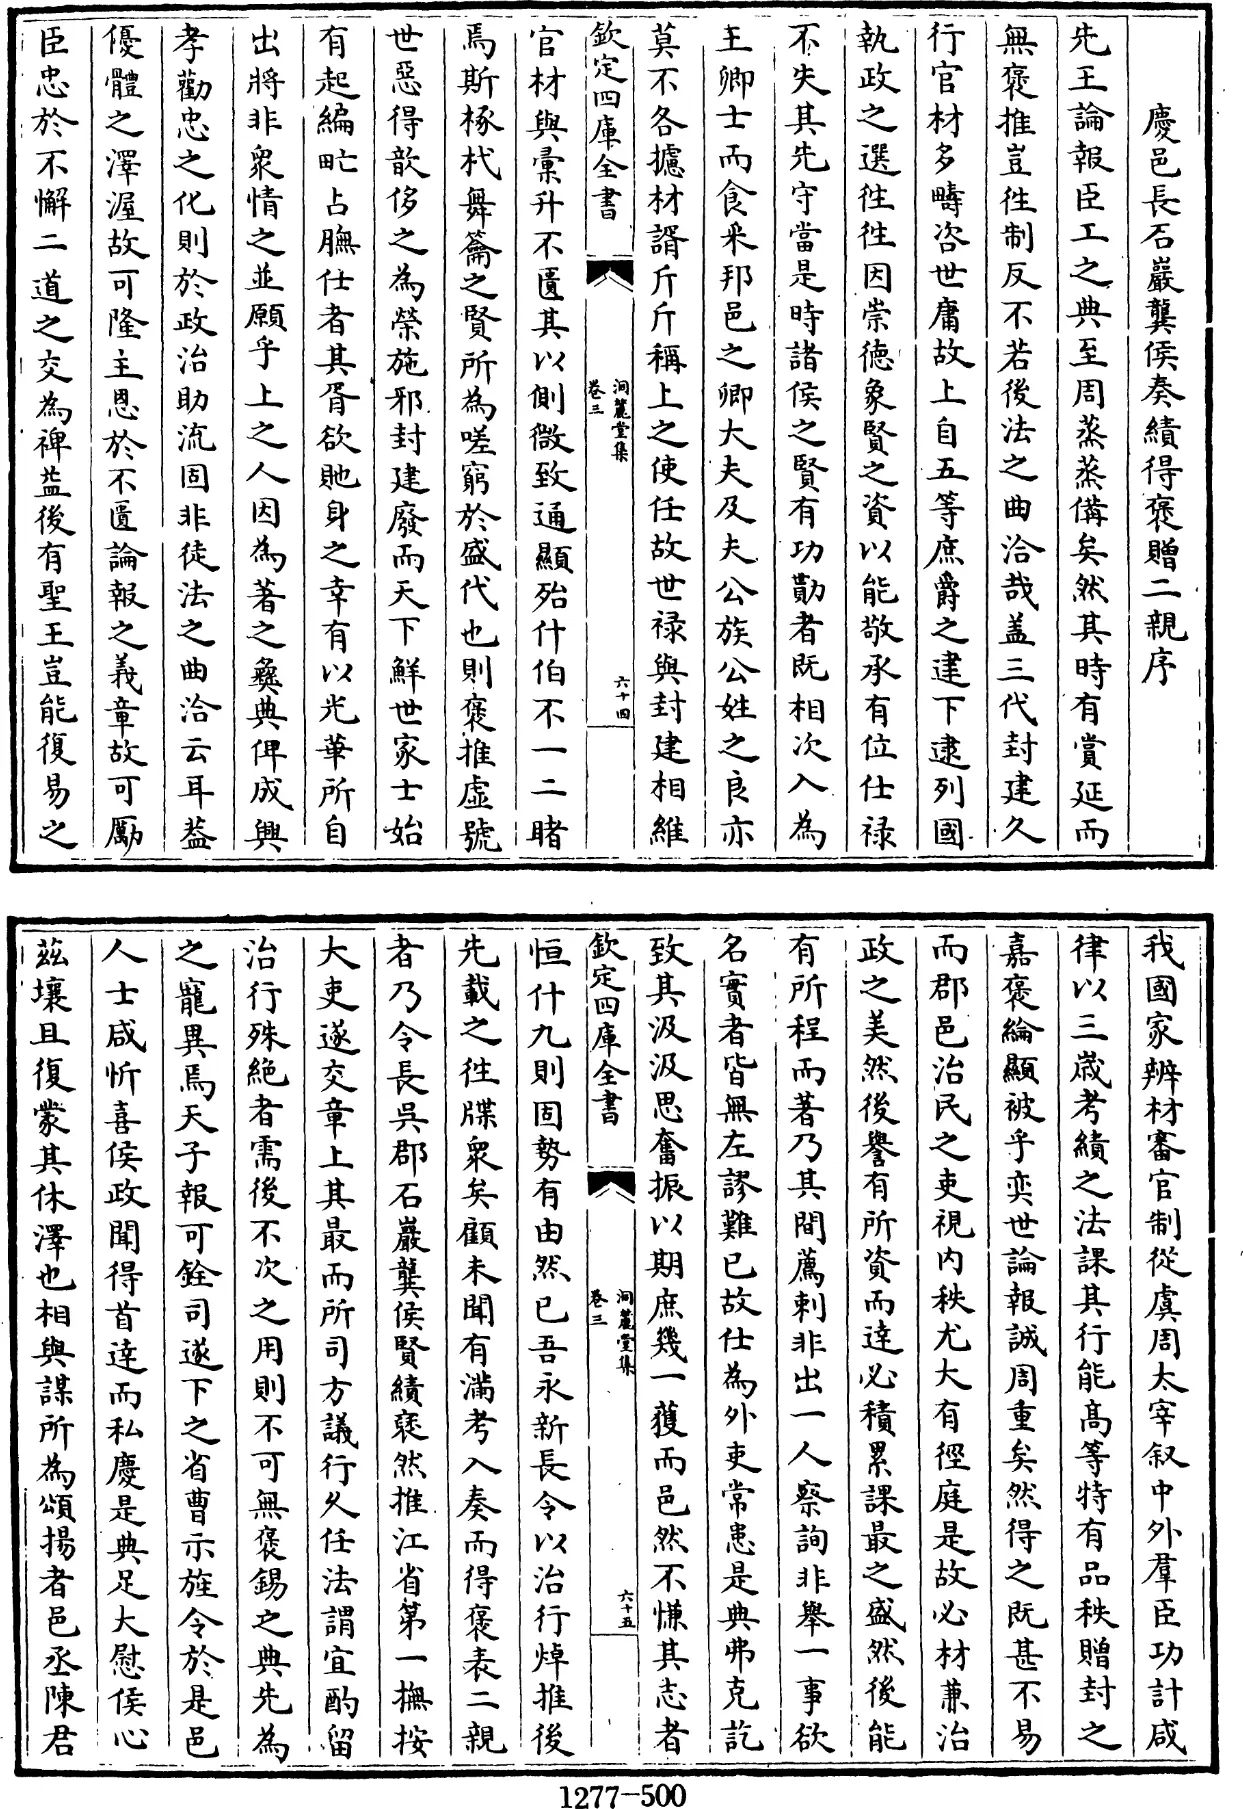 慶邑長石巖龔侯奏績得褒贈二親序
先王論報臣工之典至周蒸蒸備矣然其時有賞延而
無褒推豈徃制反不若後法之曲洽哉盖三代封建久
行官材多疇咨世庸故上自五等庶爵之建下逮列國
執政之選徃徃因崇德象賢之資以能敬承有位仕禄
不失其先守當是時諸侯之賢有功勩者既相次入為
王卿士而食采邦邑之卿大夫及夫公族公姓之良亦
莫不各攄材諝斤斤稱上之使任故世禄與封建相維
欽定四庫全書
洞麓堂集
卷三
六十四
官材與彚升不匱其以側微致通顯殆什伯不一二睹
焉斯椓杙舞籥之賢所為嗟窮於盛代也則褒推虛號
世惡得歆侈之為榮施邪封建廢而天下鮮世家士始
有起編甿占膴仕者其胥欲貤身之幸有以光華所自
出將非衆情之並願乎上之人因為著之彝典俾成興
孝勸忠之化則於政治助流固非徒法之曲洽云耳葢
優體之澤渥故可隆主恩於不匱論報之義章故可勵
臣忠於不懈二道之交為裨益後有聖王豈能復易之
我國家辨材審官制從虞周太宰叙中外羣臣功計咸
律以三歲考績之法課其行能髙等特有品秩贈封之
嘉褒綸顯被乎奕世論報誠周重矣然得之既甚不易
而郡邑治民之吏視内秩尤大有徑庭是故必材兼治
政之美然後譽有所資而逹必積累課最之盛然後能
有所程而著乃其間薦剌非出一人察詢非舉一事欲
名實者皆無左謬難已故仕為外吏常患是典弗克訖
致其汲汲思奮振以期庶幾一獲而邑然不慊其志者
欽定四庫全書
洞麓堂集
卷三
六十五
恒什九則固勢有由然已吾永新長令以治行焯推後
先載之徃牒衆矣顧未聞有滿考入奏而得褒表二親
者乃今長吳郡石巖龔侯賢績裦然推江省第一撫按
大吏遂交章上其最而所司方議行久任法謂宜酌留
治行殊絶者需後不次之用則不可無褒錫之典先為
之寵異焉天子報可銓司遂下之省曹示旌令於是邑
人士咸忻喜侯政聞得首逹而私慶是典足大慰侯心
茲壤且復蒙其休澤也相與謀所為頌揚者邑丞陳君
1277-500